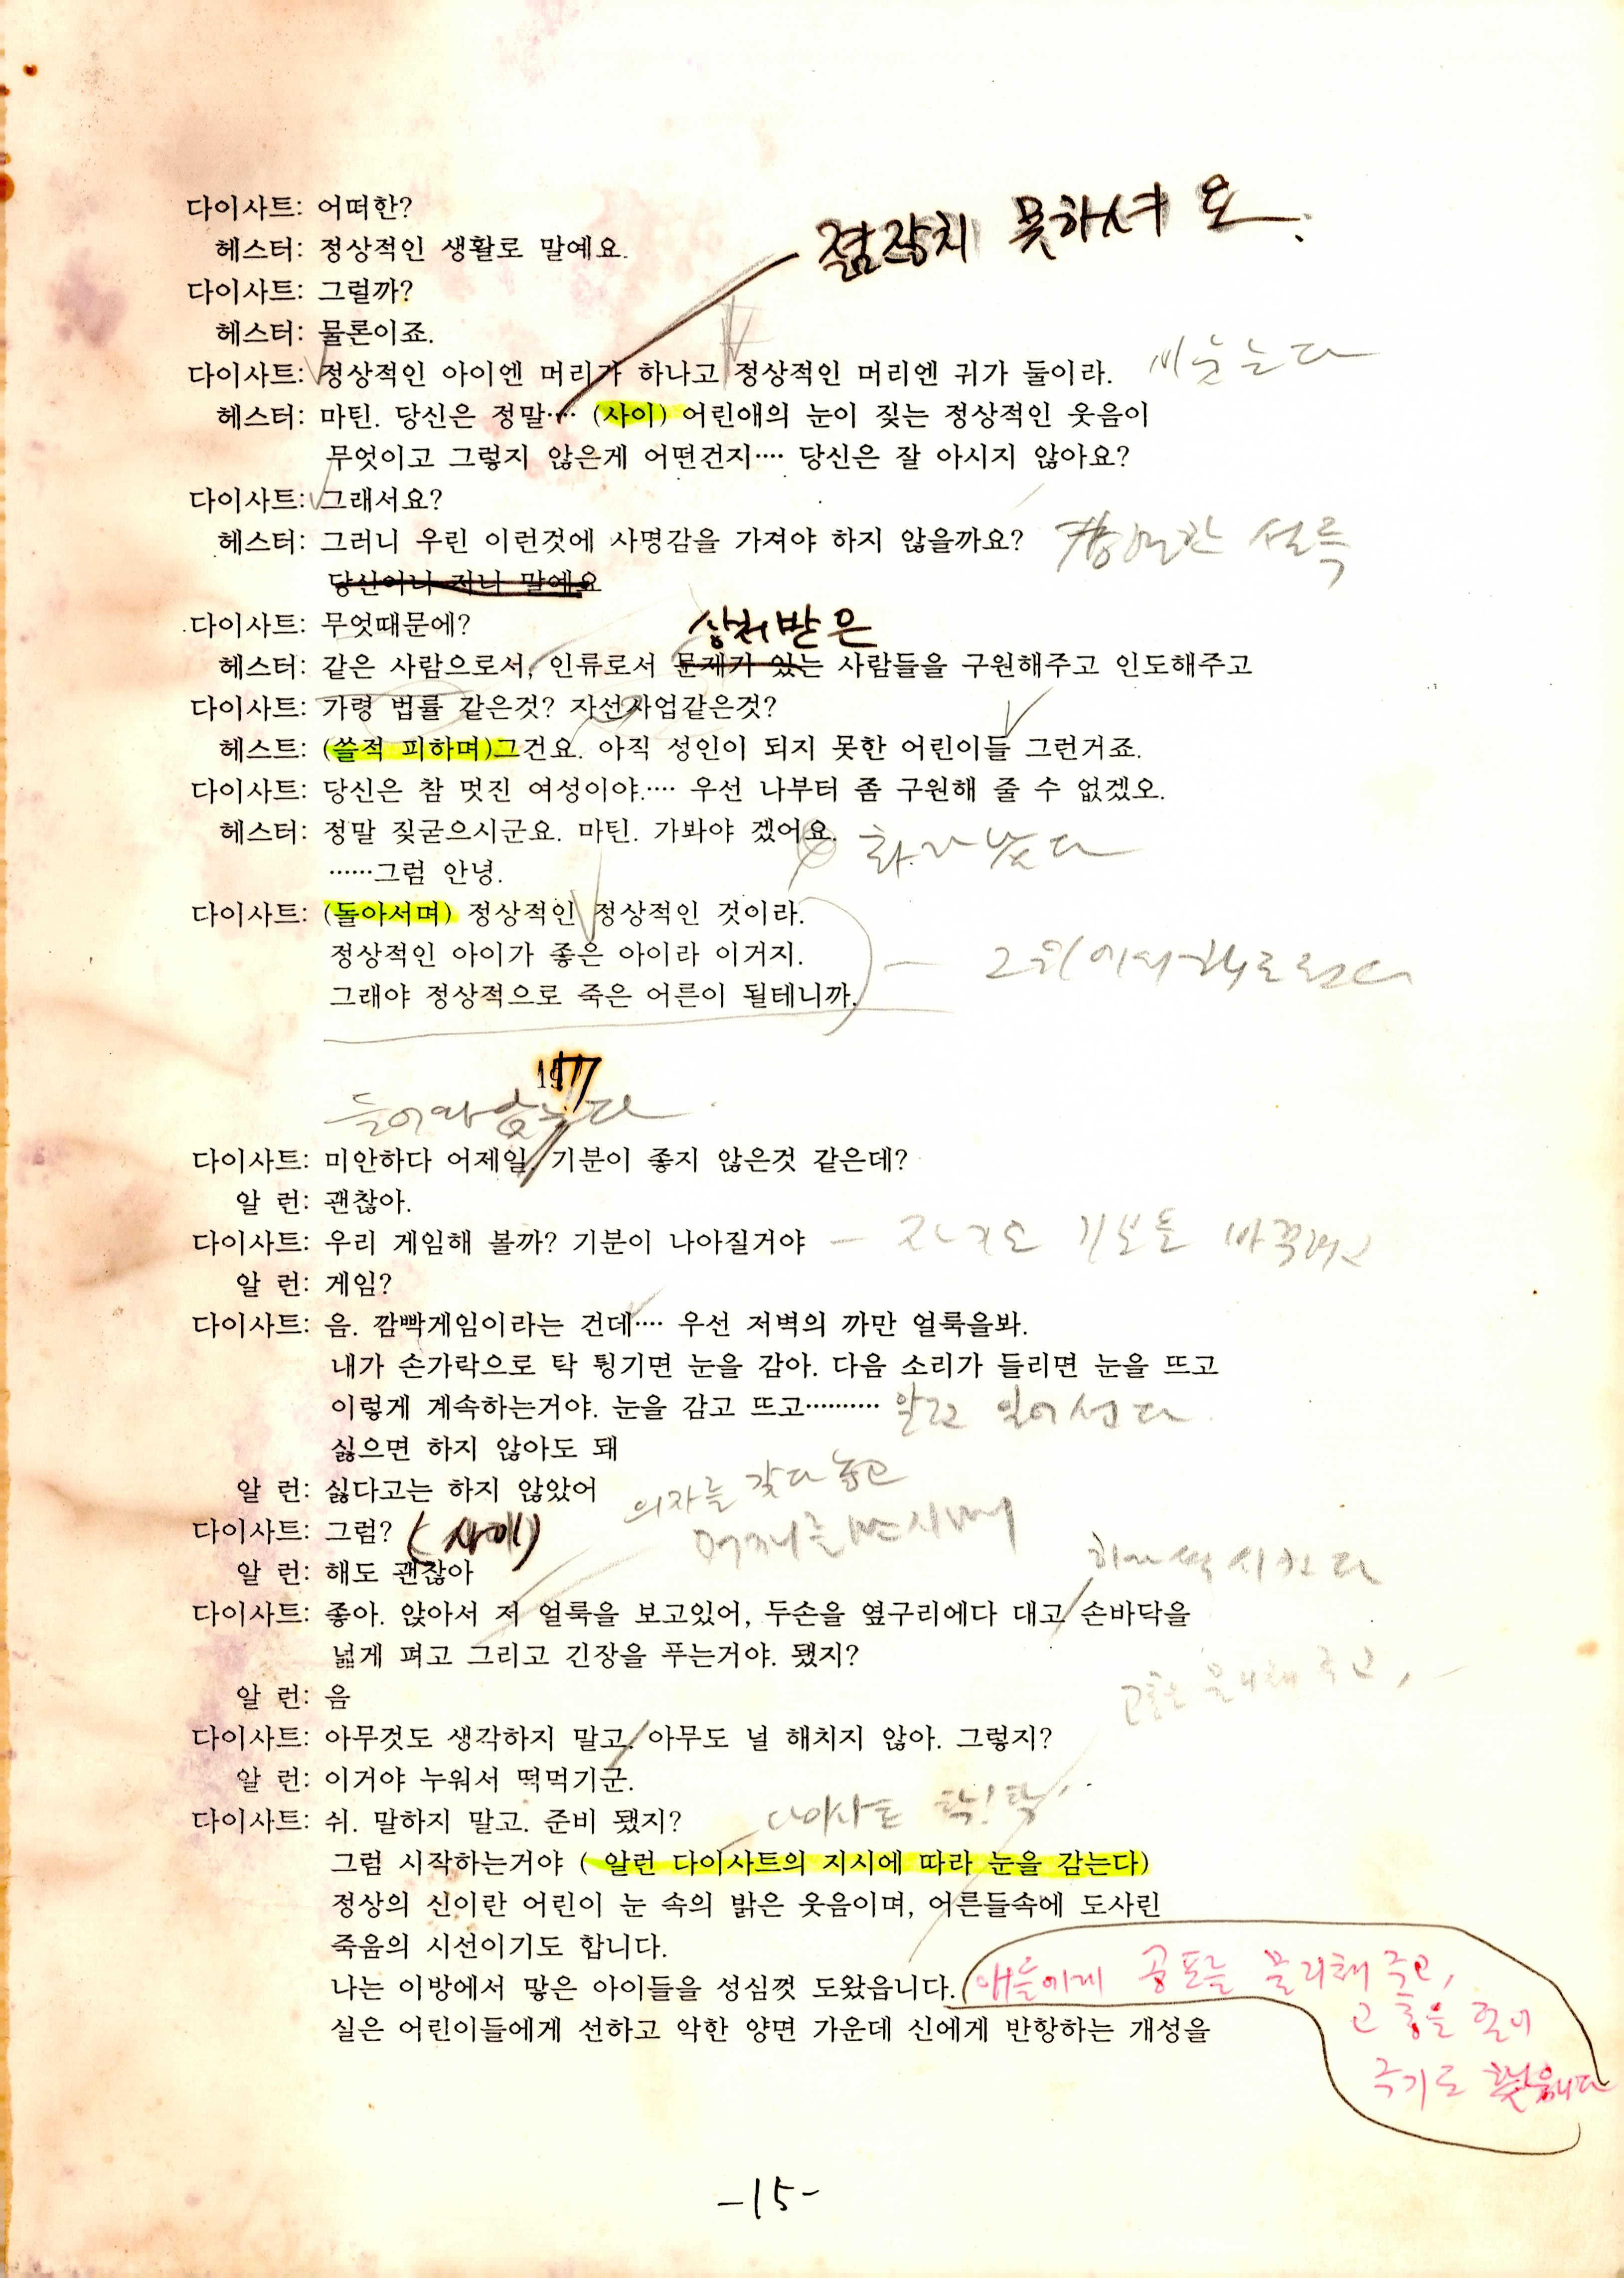 다이사트: 어떠한?
점잖치 못하셔요.
헤스터: 정상적인 생활로 말예요.
다이사트: 그럴까?
헤스터: 물론이죠.
다이사트: 정상적인 아이엔 머리가 하나고 정상적인 머리엔 귀가 둘이라. 비웃는다
헤스터: 마틴. 당신은 정말···· (사이) 어린애의 눈이 짖는 정상적인 웃음이
무엇이고 그렇지 않은게 어떤건지···· 당신은 잘 아시지 않아요?
다이사트: 그래서요?
헤스터: 그러니 우린 이런것에 사명감을 가져야 하지 않을까요? 설득
당신이나 저나 말예요
다이사트: 무엇때문에?
상처받은
헤스터: 같은 사람으로서, 인류로서 문제가 있는 사람들을 구원해주고 인도해주고
다이사트: 가령 법률 같은것? 자선사업같은것?
헤스트: (쓸적 피하며)그건요. 아직 성인이 되지 못한 어린이들 그런거죠.
다이사트: 당신은 참 멋진 여성이야.···· 우선 나부터 좀 구원해 줄 수 없겠오.
헤스터: 정말 짖굳으시군요. 마틴. 가봐야 겠어요. 화가 났다
······그럼 안녕.
다이사트: (돌아서며) 정상적인 정상적인 것이라.
정상적인 아이가 좋은 아이라 이거지.
그래야 정상적으로 죽은 어른이 될테니까.
17
다이사트: 미안하다 어제일. 기분이 좋지 않은것 같은데?
알 런: 괜찮아.
다이사트: 우리 게임해 볼까? 기분이 나아질거야
알 런: 게임?
다이사트: 음. 깜빡게임이라는 건데···· 우선 저벽의 까만 얼룩을봐.
내가 손가락으로 탁 튕기면 눈을 감아. 다음 소리가 들리면 눈을 뜨고
이렇게 계속하는거야. 눈을 감고 뜨고·········· 알런 일어선다
싫으면 하지 않아도 돼
알 런: 싫다고는 하지 않았어
의자를 갖다 놓고
다이사트: 그럼? (사이)
알 런: 해도 괜찮아
다이사트: 좋아. 앉아서 저 얼룩을 보고있어, 두손을 옆구리에다 대고 손바닥을
넓게 펴고 그리고 긴장을 푸는거야. 됐지?
알 런: 음
다이사트: 아무것도 생각하지 말고. 아무도 널 해치지 않아. 그렇지?
알 런: 이거야 누워서 떡먹기군.
다이사트: 쉬. 말하지 말고. 준비 됐지? 다이사트 탁! 탁
그럼 시작하는거야 ( 알런 다이사트의 지시에 따라 눈을 감는다)
정상의 신이란 어린이 눈 속의 밝은 웃음이며, 어른들속에 도사린
죽음의 시선이기도 합니다.
나는 이방에서 많은 아이들을 성심껏 도왔읍니다. 애들에게 공포를 물리쳐 주고,
실은 어린이들에게 선하고 악한 양면 가운데 신에게 반항하는 개성을
고통을 덜어
주기도 했읍니다
-15-